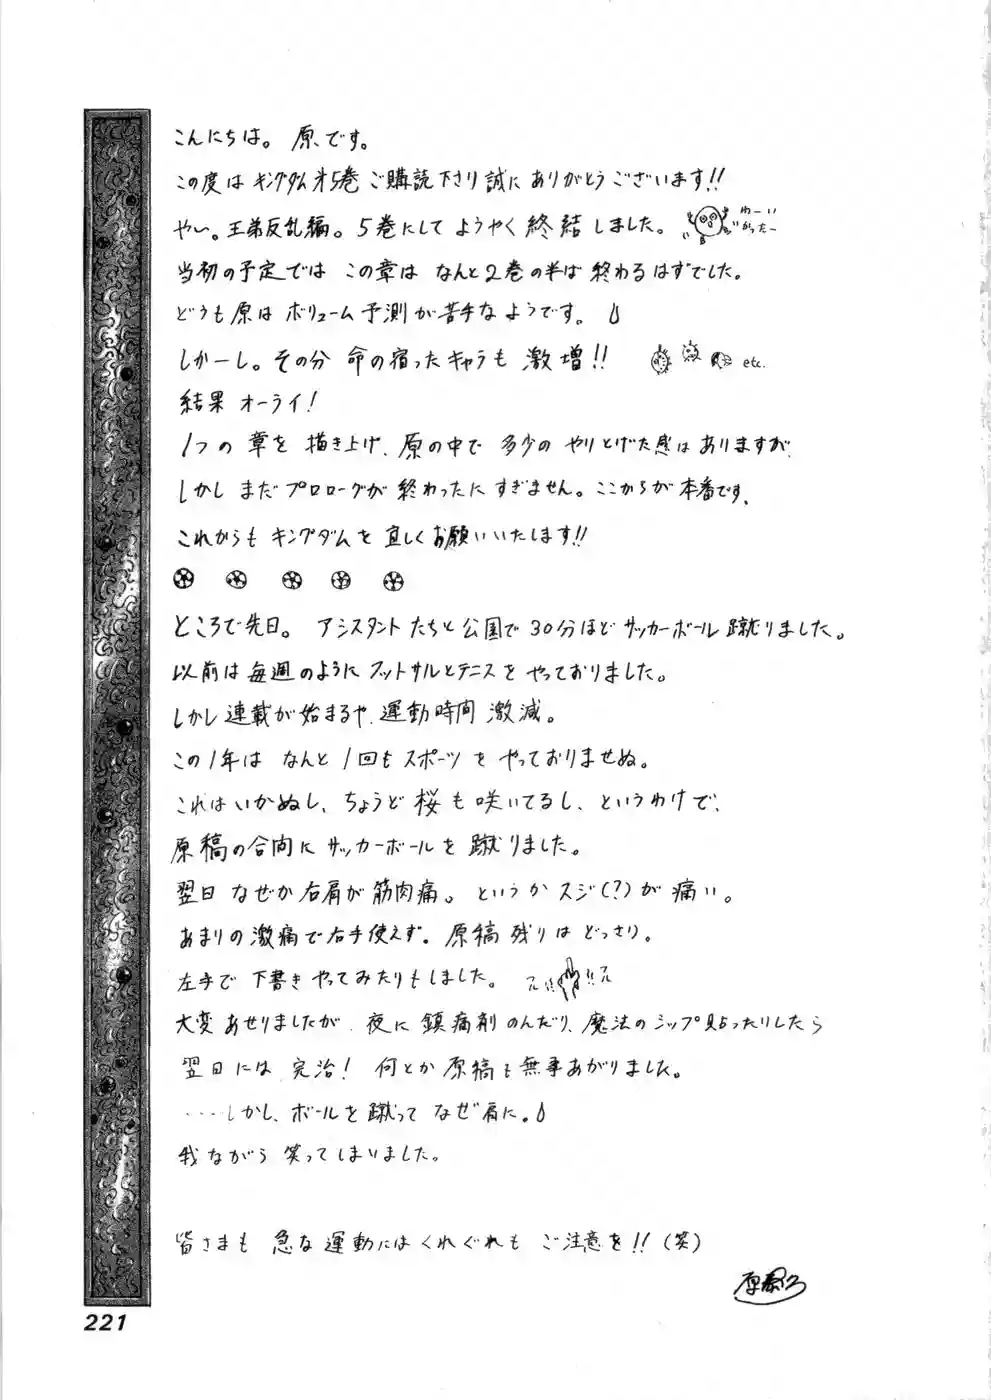 こんにちは。原です。
この度はキングダム第5巻ご購読下さり誠にありがとうございます!!
やい。王弟反乱編。5巻にしてようやく終結しました。
わーい
がったー
当初の予定ではこの章はなんと2巻の半ば終わるはずでした。
どうも原はボリューム予測が苦手なようです。
しかーし。その分命の宿ったキャラも激増!!
etc.
結果オーライ!
1つの章を描き上げ、原の中で多少のやりとげた感はありますが、
しかしまだプロローグが終わったにすぎません。ここからが本番です。
これからもキングダムを宜しくお願いいたします!!
ところで先日。アシスタントたちと公園で30分ほどサッカーボール蹴りました。
以前は毎週のようにフットサルとテニスをやっておりました。
しかし連載が始まるや、運動時間激減。
この1年はなんと1回もスポーツをやっておりませぬ。
これはいかぬし、ちょうど桜も咲いてるし、というわけで、
原稿の合間にサッカーボールを蹴りました。
翌日なぜか右肩が筋肉痛。というかスジ(?)が痛い。
あまりの激痛で右手使えず。原稿残りはどっさり。
左手で下書きやってみたりもしました。
大変あせりましたが、夜に鎮痛剤のんだり、魔法のシップ貼ったりしたら
翌日には完治!何とか原稿も無事あがりました。
……しかし、ボールを蹴ってなぜ肩に。
我ながら笑ってしまいました。
皆さまも急な運動にはくれぐれもご注意を!!(笑)
原泰久
221